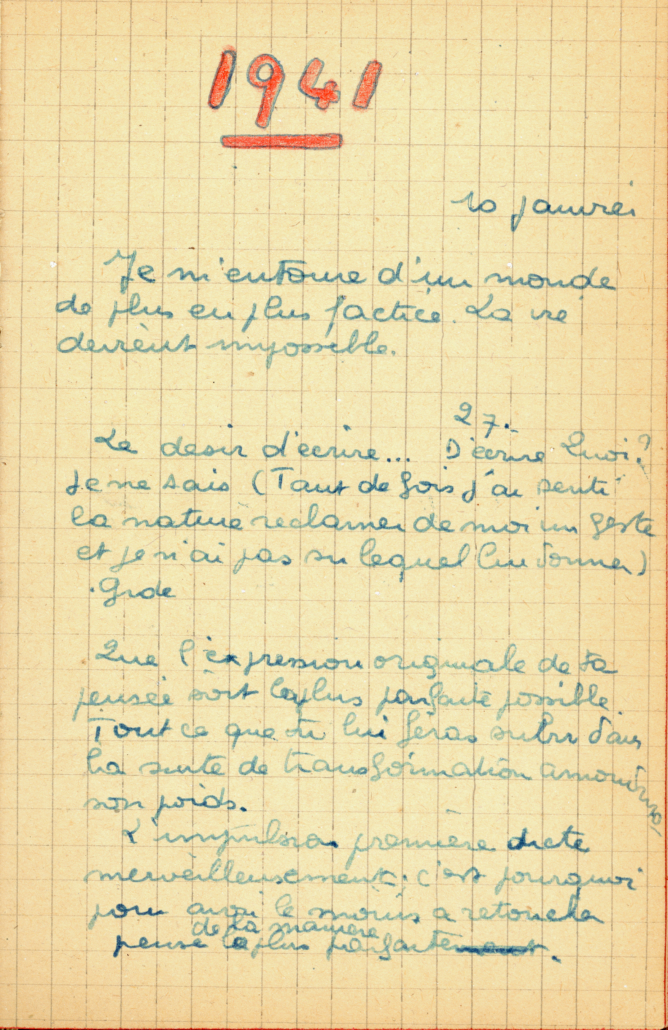 1941
10 janvier
Je m'entoure d'un monde
de plus en plus factice. La vie
devient impossible.
27.
Le desir d'écrire... D'écrire Quoi?
Je ne sais (Tant de fois j'ai senti
la nature reclamer de moi un geste
et je n'ai pas su lequel lui donner)
. Gide
Que l'expression originale de ta
pensée soit la plus parfaite possible.
Tout ce que tu lui feras subir dans
la suite de transformation amoindrira
son poids.
L'impulsion première dicte
merveilleusement. c'est pourquoi
pour avoir le moins a retoucher
de la manière
pense la plus parfaite.